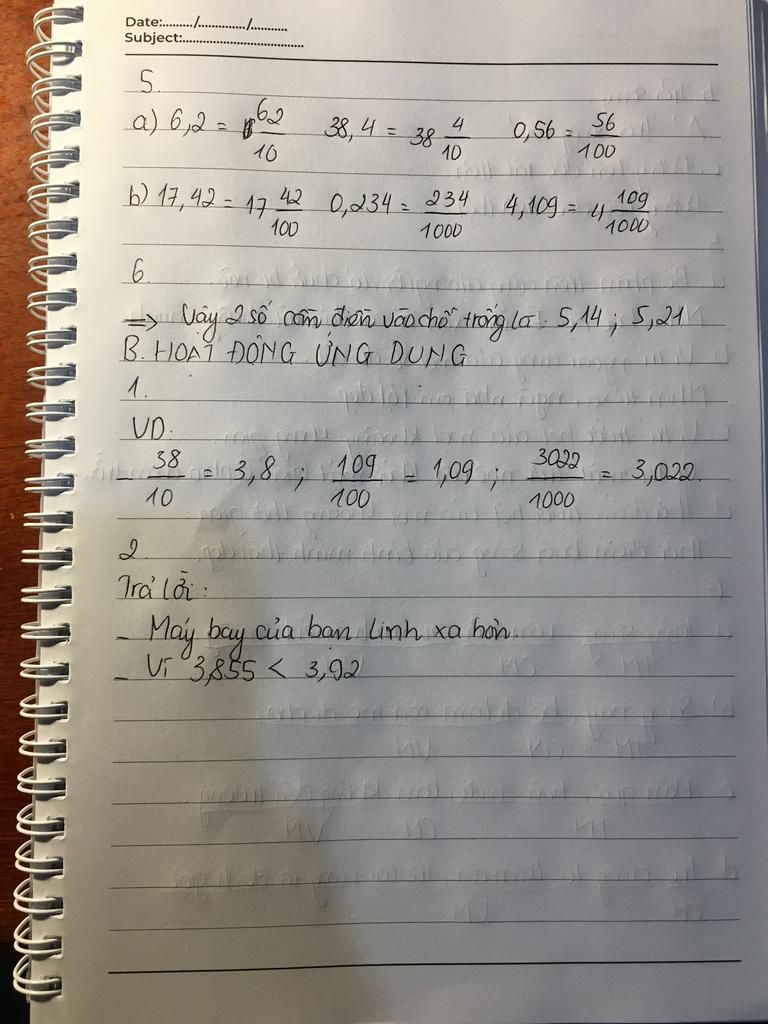 Date:........./............./..........
Subject:.................................
5.
a) 6,2 = 62/10 38,4 = 38 4/10 0,56 = 56/100
b) 17,42 = 17 42/100 0,234 = 234/1000 4,109 = 4 109/1000
6.
=> Vậy 2 số cần điền vào chỗ trống là : 5,14 ; 5,21
B. HOẠT ĐỘNG ỨNG DỤNG
1.
VD:
- 38/10 = 3,8 ; 109/100 = 1,09 ; 3022/1000 = 3,022.
2.
Trả lời :
- Máy bay của bạn Linh xa hơn.
- Vì 3,855 < 3,92